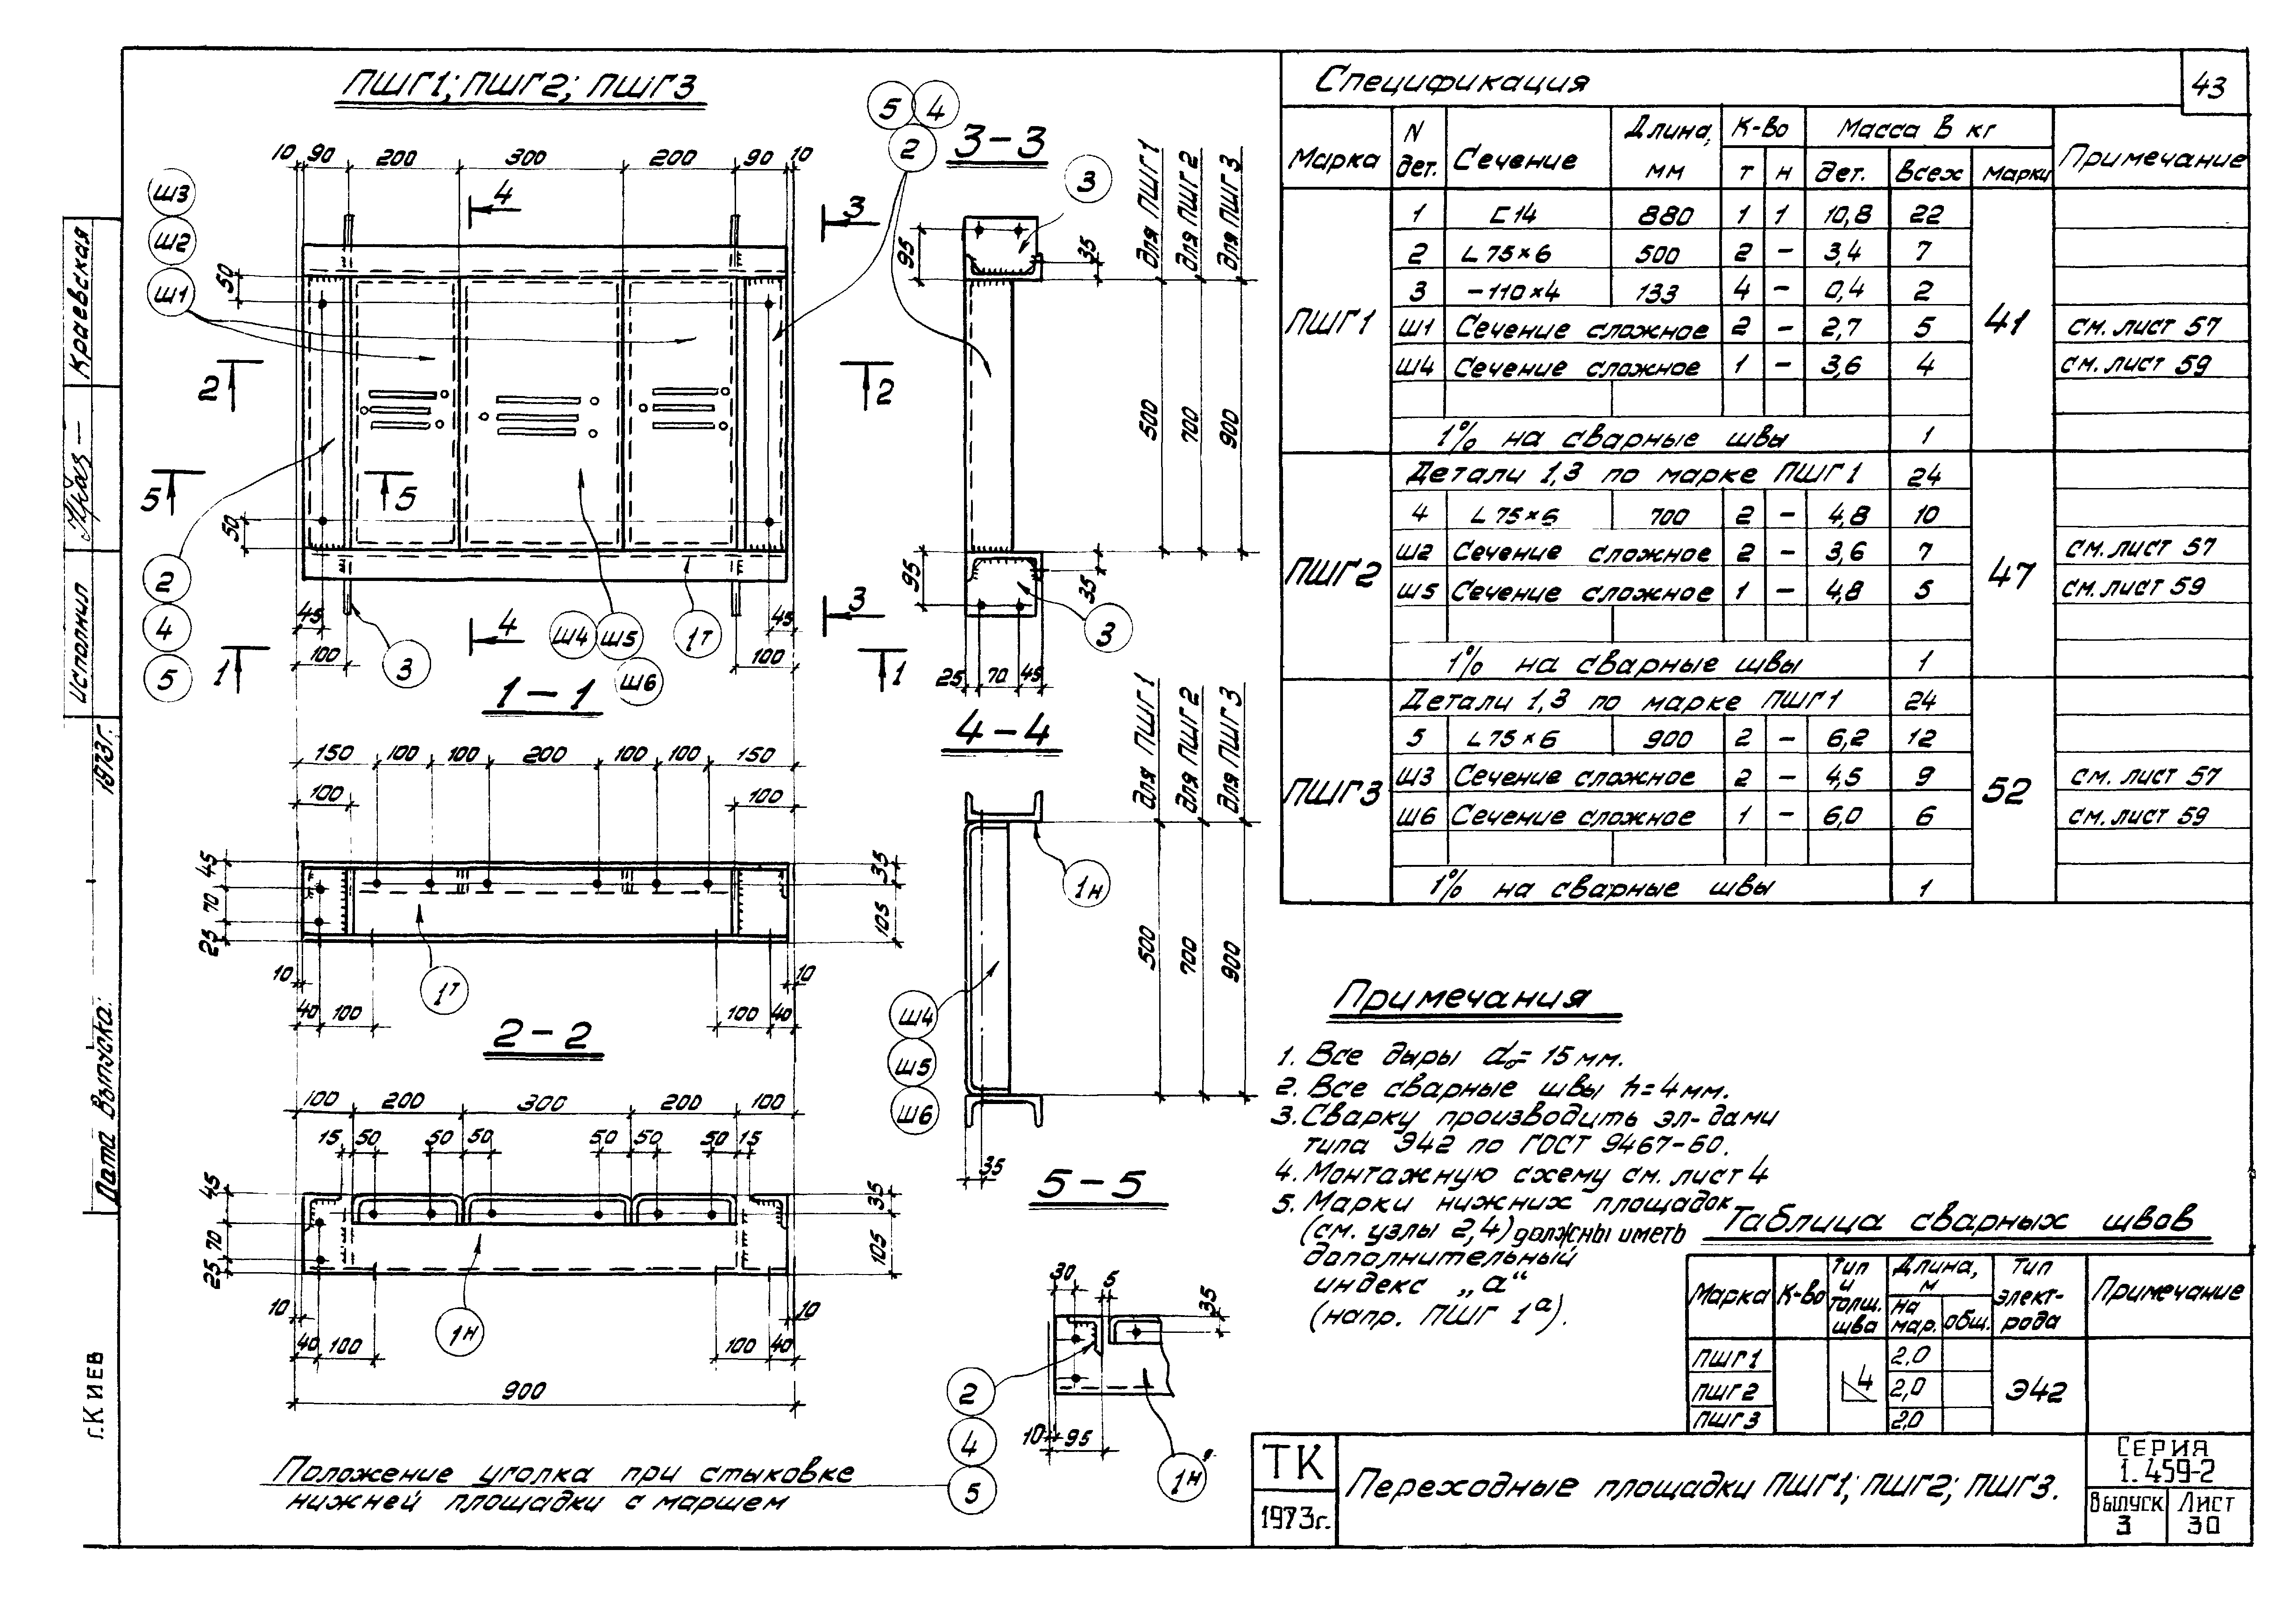 ПШГ1; ПШГ2; ПШГ3
10 90 200 300 200 90 10
Ш3
Ш2
Ш1
50
50
4
3
2 2
5 5
2
4
5
45 45
100 100
3
4
3
Ш4 Ш5
Ш6
1т
1 1
5 4
2
3-3
3
95
35
для ПШГ1
для ПШГ2
для ПШГ3
2
500
700
900
95
35
3
25 70 45
1-1
150 100 100 200 100 100 150
100 100
45
70
25
35
105
10 10
40 100 100 40
1т
2-2
100 200 300 200 100
15 50 50 50 50 50 50 15
45
70
25
35
105
10 10
40 100 100 40
1н
900
4-4
для ПШГ1
для ПШГ2
для ПШГ3
1н
500
700
900
Ш4
Ш5
Ш6
35
5-5
30 5
35
2
4
5
10 95
1н
Положение уголка при стыковке
нижней площадки с маршем
Спецификация
43
Марка N дет. Сечение Длина, мм К-во Масса в кг Примечание
т н дет. всех марки
ПШГ1 41
1 ⊏14 880 1 1 10,8 22
2 L 75×6 500 2 - 3,4 7
3 -110×4 133 4 - 0,4 2
Ш1 Сечение сложное 2 - 2,7 5 см. лист 57
Ш4 Сечение сложное 1 - 3,6 4 см. лист 59
1% на сварные швы 1
ПШГ2 47
Детали 1,3 по марке ПШГ1 24
4 L 75×6 700 2 - 4,8 10
Ш2 Сечение сложное 2 - 3,6 7 см. лист 57
Ш5 Сечение сложное 1 - 4,8 5 см. лист 59
1% на сварные швы 1
ПШГ3 52
Детали 1,3 по марке ПШГ1 24
5 L 75×6 900 2 - 6,2 12
Ш3 Сечение сложное 2 - 4,5 9 см. лист 57
Ш6 Сечение сложное 1 - 6,0 6 см. лист 59
1% на сварные швы 1
Примечания
1. Все дыры d₀= 15 мм.
2. Все сварные швы h=4мм.
3. Сварку производить эл-дами
типа Э42 по ГОСТ 9467-60.
4. Монтажную схему см. лист 4
5. Марки нижних площадок
(см. узлы 2,4) должны иметь
дополнительный
индекс „а“
(напр. ПШГ 1ᵃ).
Таблица сварных швов
Марка К-во Тип и толщ. шва Длина, м Тип элект-рода Примечание
на мар. общ.
ПШГ1 2,0
ПШГ2 4 2,0 Э42
ПШГ3 2,0
ТК
1973г.
Переходные площадки ПШГ1; ПШГ2; ПШГ3.
Серия
1. 459-2
Выпуск
3
Лист
30
Краевская
Исполнил
1973г.
Дата выпуска:
г.Киев